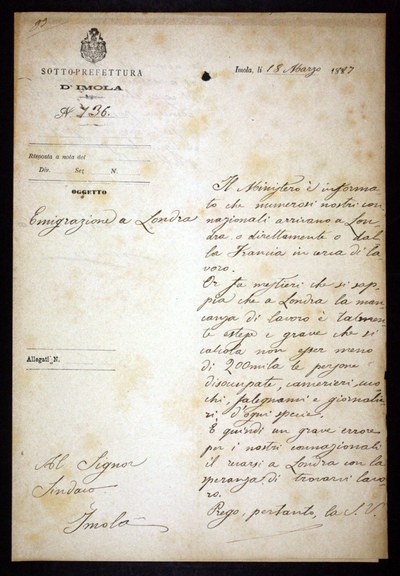 93
SOTTO-PREFETTURA
D'IMOLA
N. 736.
Imola, li 18 Marzo 1887
Risposta a nota del
Div. Sez. N.
OGGETTO
Emigrazione a Londra
Allegati N.
Al Signor
Sindaco
Imola
Il Ministero è informa
to che numerosi nostri con
nazionali arrivano a Lon
dra o direttamente o dal
la Francia in cerca di la
voro.
Or fa mestieri che si sap
pia che a Londra la man
canza di lavoro è talmen
te estesa e grave che si
calcola non esser meno
di 200mila le persone
disoccupate, camerieri, cuo
chi, falegnami e giornalie
ri d'ogni specie.
È quindi un grave errore
per i nostri connazionali
il recarsi a Londra con la
speranza di trovarvi lavo
ro.
Prego, pertanto, la S. V.